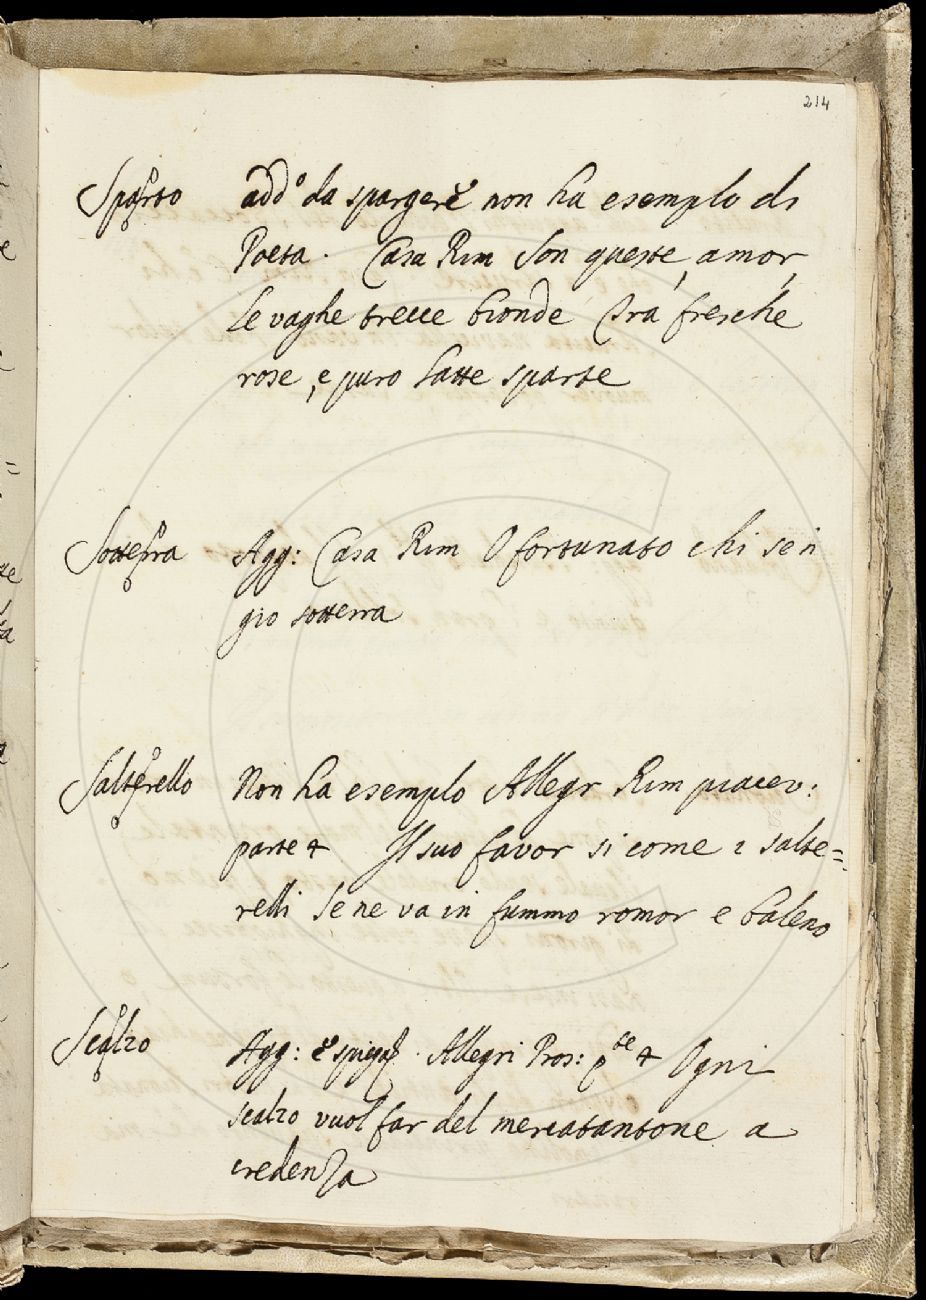 214
Sparto add.º da spargere non ha esemplo di
Poeta. Casa Rim Son queste, amor,
le vaghe trecce bionde Tra fresche
rose, e puro latte sparte
Sotterra Agg: Casa Rim O fortunato chi sen
gio sotterra
Salterello Non ha esemplo Allegr Rim piacev:
parte 4 Il suo favor si come i salte=
relli Se ne va in fummo romor e baleno
Scalzo Agg: e spiegaz. Allegri Pros: pte 4 Ogni
scalzo vuol far del mercatantone a
credenza